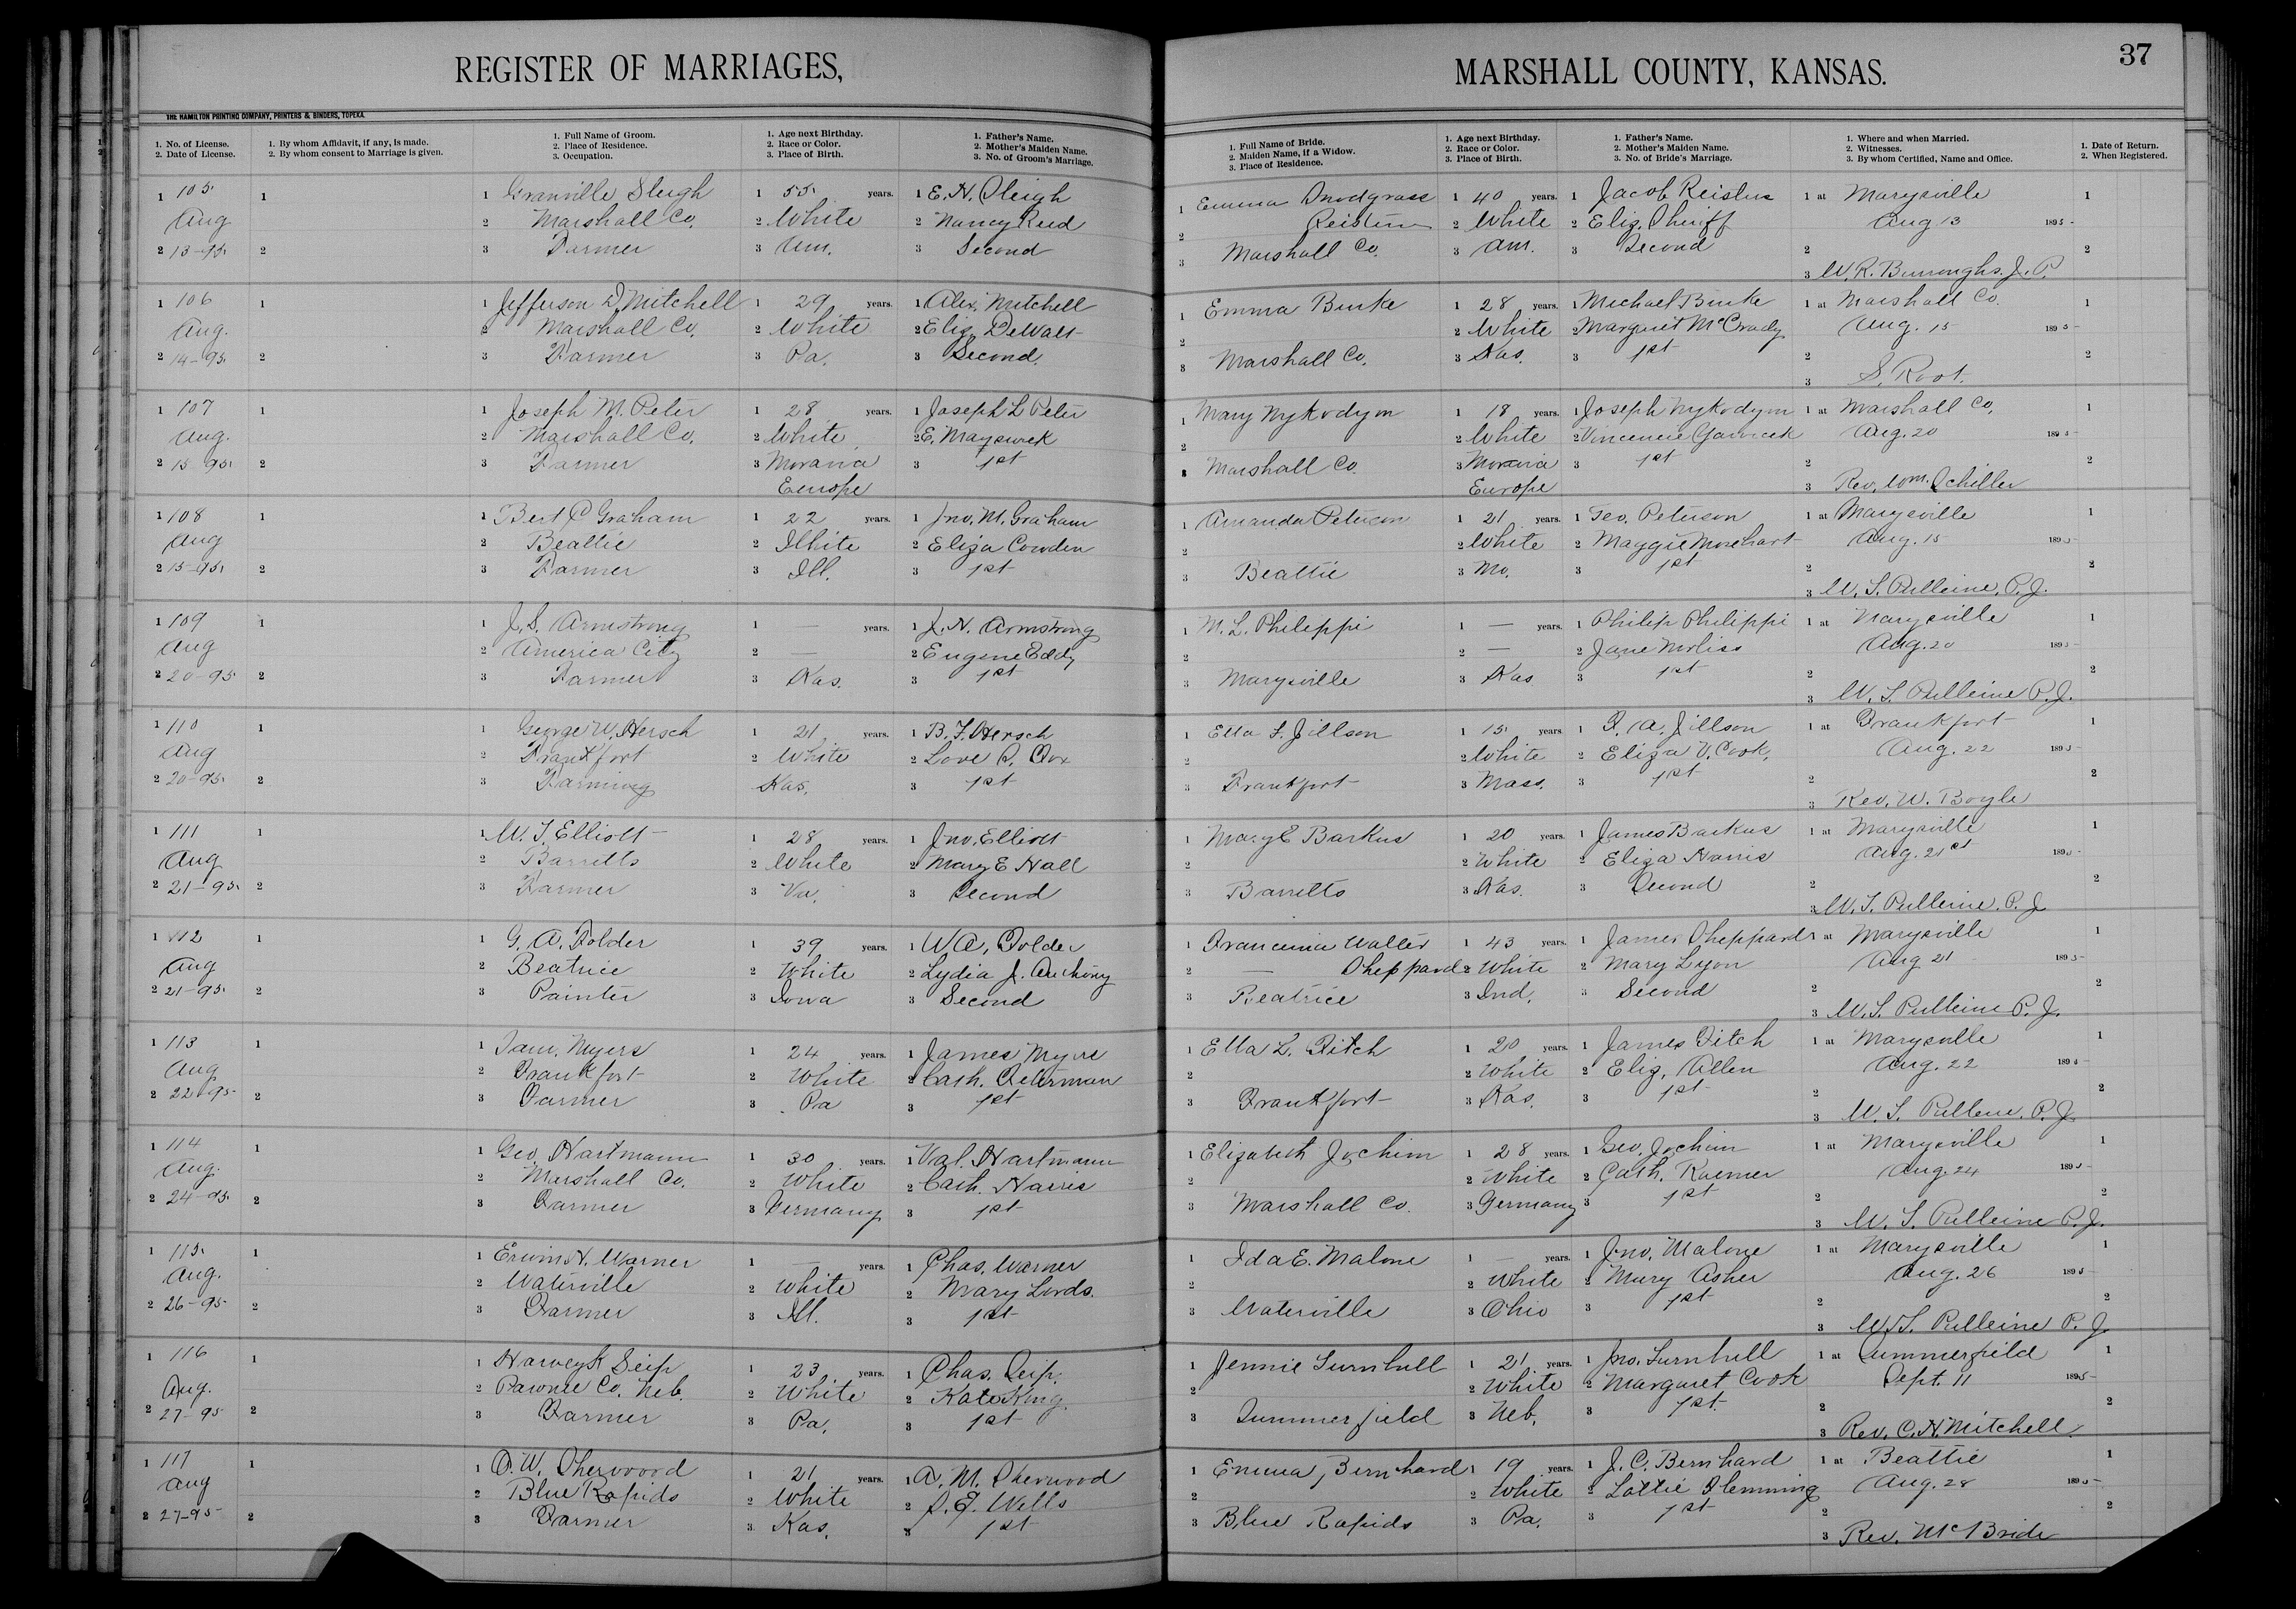 REGISTER OF MARRIAGES,
MARSHALL COUNTY, KANSAS.
37
THE HAMILTON PRINTING COMPANY, PRINTERS & BINDERS, TOPEKA.
1. No. of License.
2. Date of License.
1. By whom Affidavit, if any, is made.
2. By whom consent to Marriage is given.
1. Full Name of Groom.
2. Place of Residence.
3. Occupation.
1. Age next Birthday.
2. Race or Color.
3. Place of Birth.
1. Father's Name.
2. Mother's Maiden Name.
3. No. of Groom's Marriage.
1. Full Name of Bride.
2. Maiden Name, if a Widow.
3. Place of Residence.
1. Age next Birthday.
2. Race or Color.
3. Place of Birth.
1. Father's Name.
2. Mother's Maiden Name.
3. No. of Bride's Marriage.
1. Where and when Married.
2. Witnesses.
3. By whom Certified, Name and Office.
1. Date of Return.
2. When Registered.
1 105 1 1 Granville Sleigh 1 55 years. 1 E. H. Sleigh 1 Emma Snodgrass 1 40 years. 1 Jacob 1 at Marysville 1
Aug 2 Marshall Co. 2 White 2 Nancy Reed 2 2 White 2 Eliz. Sheriff Aug 13 1895
2 13-95 2 3 Farmer 3 Am. 3 Second 3 Marshall Co. 3 Am. 3 Second 2 2
3 W. R. Burroughs, J. P.
1 106 1 1 Jefferson D. Mitchell 1 29 years. 1 Alex. Mitchell 1 Emma Burke 1 28 years. 1 Michael Burke 1 at Marshall Co. 1
Aug. 2 Marshall Co. 2 White 2 Eliz. DeWalt 2 2 White 2 Margaret McCrady Aug. 15 1895
2 14-95 2 3 Farmer 3 Pa. 3 Second 3 Marshall Co. 3 Kas. 3 1st 2 2
3 S. Root.
1 107 1 1 Joseph M. Peter 1 28 years. 1 Joseph L Peter 1 Mary Nykodym 1 18 years. 1 Joseph Nykodym 1 at Marshall Co. 1
Aug. 2 Marshall Co. 2 White 2 E. 2 2 White 2 Aug. 20 1895
2 15-95 2 3 Farmer 3 Moravia Europe 3 1st 3 Marshall Co. 3 Moravia Europe 3 1st 2 2
3 Rev. Wm. Schiller
1 108 1 1 Bert C Graham 1 22 years. 1 Jno. M. Graham 1 Amanda Peterson 1 21 years. 1 Geo. Peterson 1 at Marysville 1
Aug 2 Beattie 2 White 2 Eliza Cowden 2 2 White 2 Maggie Morehart Aug. 15 1895
2 15-95 2 3 Farmer 3 Ill. 3 1st 3 Beattie 3 Mo. 3 1st 2 2
3 W. S. Pulleine, P. J.
1 109 1 1 J. S. Armstrong 1 — years. 1 J. N. Armstrong 1 M. L. Philippi 1 — years. 1 Philip Philippi 1 at Marysville 1
Aug 2 America City 2 — 2 Eugene Eddy 2 2 — 2 Jane Aug. 20 1895
2 20-95 2 3 Farmer 3 Kas. 3 1st 3 Marysville 3 Kas 3 1st 2 2
3 W. S. Pulleine P. J.
1 110 1 1 George W. Hersch 1 21 years. 1 B. F. Hersch 1 Etta F. Jillson 1 15 years. 1 F. A. Jillson 1 at Frankfort 1
Aug 2 Frankfort 2 White 2 Love 2 2 White 2 Eliza V. Cook, Aug. 22 1895
2 20-95 2 3 Farming Kas. 3 1st 3 Frankfort 3 Mass. 3 1st 2 2
3 Rev. W. Boyle
1 111 1 1 W. T. Elliott 1 28 years. 1 Jno. Elliott 1 Mary E Barkus 1 20 years. 1 James Barkus 1 at Marysville 1
Aug 2 Barretts 2 White 2 Mary E Hall 2 2 White 2 Eliza Harris Aug. 21st 1895
2 21-95 2 3 Farmer 3 Va. 3 Second 3 Barretts 3 Kas. 3 Second 2 2
3 W. S. Pulleine, P. J.
1 112 1 1 G. A. Folder 1 39 years. 1 W. A. Folder 1 Walter 1 43 years. 1 James Sheppard 1 at Marysville 1
Aug 2 Beatrice 2 White 2 Lydia J. Anthony 2 — Sheppard 2 White 2 Mary Lyon Aug 21 1895
2 21-95 2 3 Painter 3 Iowa 3 Second 3 Beatrice 3 Ind. 3 Second 2 2
3 W. S. Pulleine P. J.
1 113 1 1 Sam. Myers 1 24 years. 1 James Myers 1 Ella L. Fitch 1 20 years. 1 James Fitch 1 at Marysville 1
Aug 2 Frankfort 2 White 2 Cath. 2 2 White 2 Eliz. Allen Aug. 22 1895
2 22-95 2 3 Farmer 3 Pa 3 1st 3 Frankfort 3 Kas. 3 1st 2 2
3 W. S. Pulleine, P. J.
1 114 1 1 Geo. Hartmann 1 30 years. 1 Val. Hartmann 1 Elizabeth Jochim 1 28 years. 1 Geo. Jochim 1 at Marysville 1
Aug. 2 Marshall Co. 2 White 2 Cath. Harris 2 2 White 2 Cath. Raemer Aug. 24 1895
2 24-95 2 3 Farmer 3 Germany 3 1st 3 Marshall Co. 3 Germany 3 1st 2 2
3 W. S. Pulleine P. J.
1 115 1 1 Erwin H. Warner 1 — years. 1 Chas. Warner 1 Ida E. Malone 1 — years. 1 Jno. Malone 1 at Marysville 1
Aug. 2 Waterville 2 White 2 Mary Lords. 2 2 White 2 Mary Asher Aug. 26 1895
2 26-95 2 3 Farmer 3 Ill. 3 1st 3 Waterville 3 Ohio 3 1st 2 2
3 W. S. Pulleine P. J.
1 116 1 1 Harvey K Seip 1 23 years. 1 Chas. Seip. 1 Jennie Turnbull 1 21 years. 1 Jno. Turnbull 1 at Summerfield 1
Aug. 2 Pawnee Co. Neb. 2 White 2 Kate King. 2 2 White 2 Margaret Cook Sept. 11 1895
2 27-95 2 3 Farmer 3 Pa. 3 1st 3 Summerfield 3 Neb. 3 1st. 2 2
3 Rev. C. H. Mitchell.
1 117 1 1 O. W. Sherwood 1 21 years. 1 A. M. Sherwood 1 Emma Bernhard 1 19 years. 1 J. C. Bernhard 1 at Beattie 1
Aug 2 Blue Rapids 2 White 2 Wells 2 2 White 2 Lottie Flemming Aug. 28 1895
2 27-95 2 3 Farmer 3 Kas. 3 1st 3 Blue Rapids 3 Pa. 3 1st 2 2
3 Rev. McBride